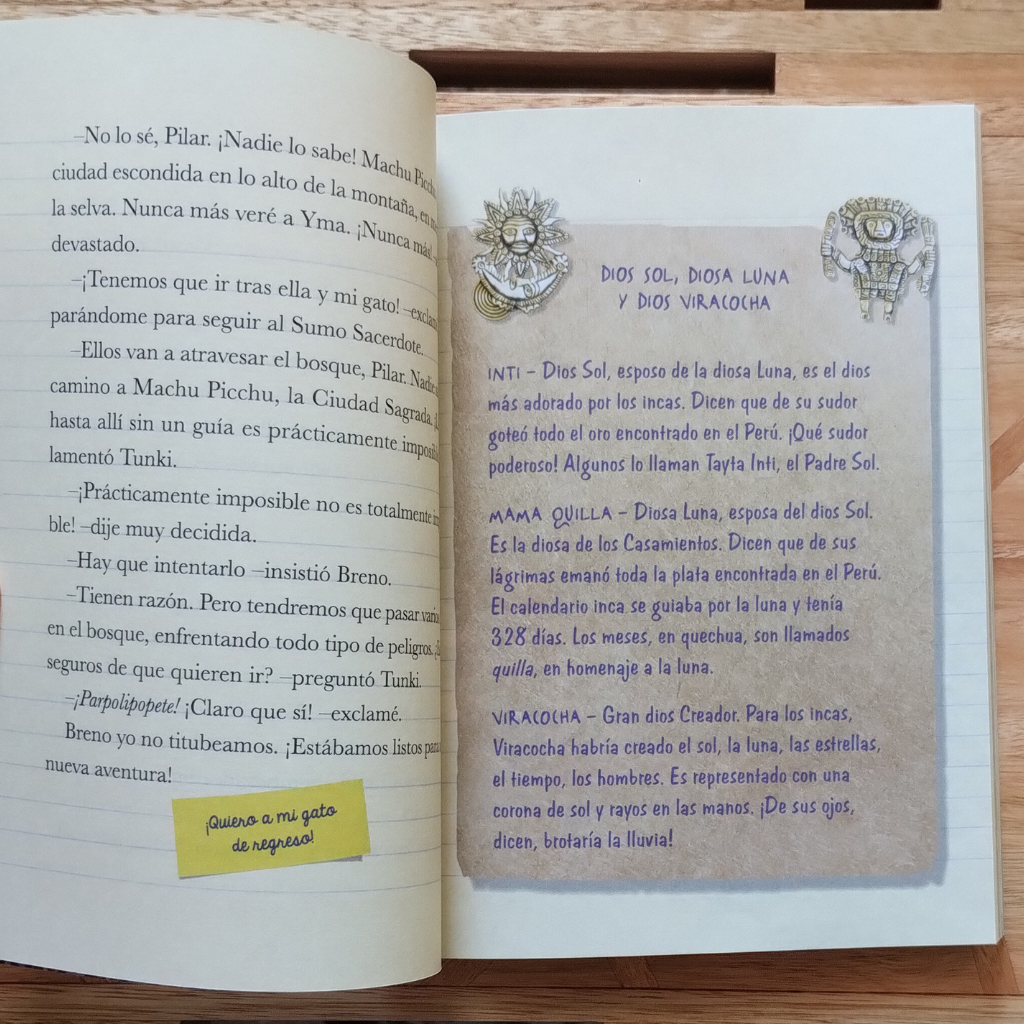 –No lo sé, Pilar. ¡Nadie lo sabe! Machu
ciudad escondida en lo alto de la montaña, en
la selva. Nunca más veré a Yma. ¡Nunca más!
devastado.
–¡Tenemos que ir tras ella y mi gato!
parándome para seguir al Sumo Sacerdote.
–Ellos van a atravesar el bosque, Pilar.
camino a Machu Picchu, la Ciudad Sagrada.
hasta allí sin un guía es prácticamente
lamentó Tunki.
–¡Prácticamente imposible no es totalmente
ble! –dije muy decidida.
–Hay que intentarlo –insistió Breno.
–Tienen razón. Pero tendremos que pasar
en el bosque, enfrentando todo tipo de peligros.
seguros de que quieren ir? –preguntó Tunki.
–¡Parpolipopete! ¡Claro que sí! –exclamé.
Breno yo no titubeamos. ¡Estábamos listos
nueva aventura!
¡Quiero a mi gato
de regreso!
DIOS SOL, DIOSA LUNA
Y DIOS VIRACOCHA
INTI – Dios Sol, esposo de la diosa Luna, es el dios
más adorado por los incas. Dicen que de su sudor
goteó todo el oro encontrado en el Perú. ¡Qué sudor
poderoso! Algunos lo llaman Tayta Inti, el Padre Sol.
MAMA QUILLA – Diosa Luna, esposa del dios Sol.
Es la diosa de los Casamientos. Dicen que de sus
lágrimas emanó toda la plata encontrada en el Perú.
El calendario inca se guiaba por la luna y tenía
328 días. Los meses, en quechua, son llamados
quilla, en homenaje a la luna.
VIRACOCHA – Gran dios Creador. Para los incas,
Viracocha habría creado el sol, la luna, las estrellas,
el tiempo, los hombres. Es representado con una
corona de sol y rayos en las manos. ¡De sus ojos,
dicen, brotaría la lluvia!